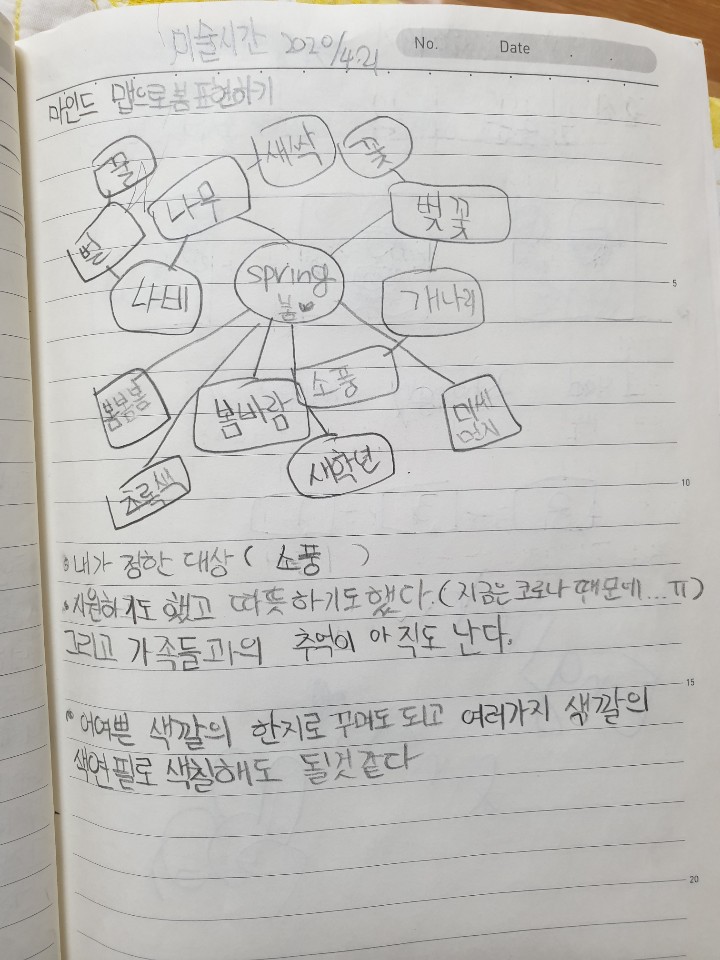 미술시간 2020/4.21
No. Date
마인드 맵으로 봄 표현하기
꿀
새싹
꽃
나무
벚꽃
벌
spring
봄
나비
개나리
소풍
봄봄봄
봄바람
미세
먼지
새학년
초록색
5
10
• 내가 정한 대상 ( 소풍 )
• 시원하기도 했고 따뜻하기도 했다. (지금은 코로나 때문에...ㅠ)
그리고 가족들과의 추억이 아직도 난다.
15
• 어여쁜 색깔의 한지로 꾸며도 되고 여러가지 색깔의
색연필로 색칠해도 될것 같다
20